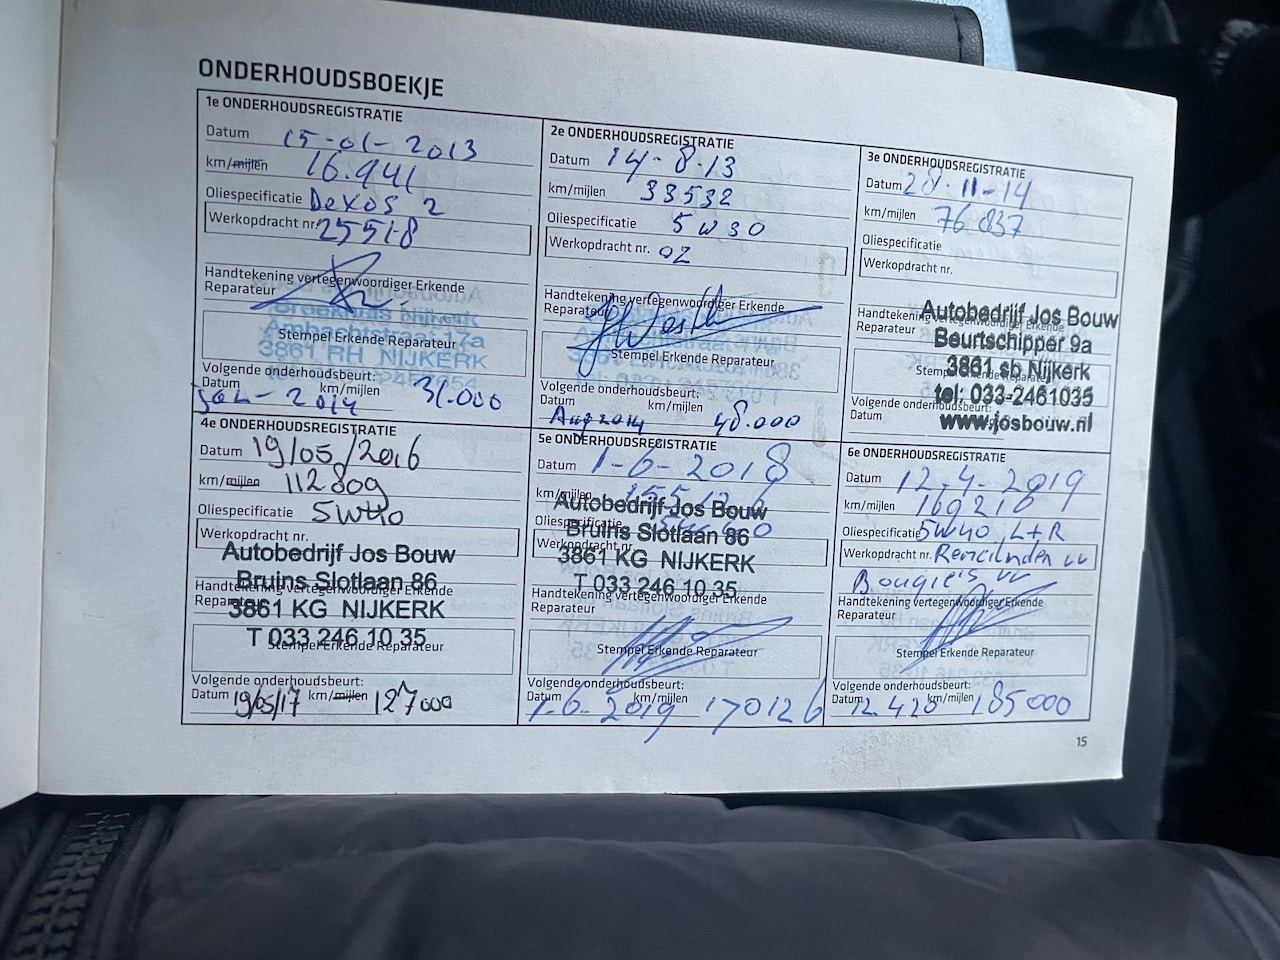 ONDERHOUDSBOEKJE
1e ONDERHOUDSREGISTRATIE
Datum 15-01-2013
km/mijlen 16.941
Oliespecificatie Dexos 2
Werkopdracht nr. 25518
Handtekening vertegenwoordiger Erkende
Reparateur
Ambachtstraat 17a
Stempel Erkende Reparateur
3861 RH NIJKERK
Volgende onderhoudsbeurt:
Datum km/mijlen
jan-2014 31.000
2e ONDERHOUDSREGISTRATIE
Datum 14-8-13
km/mijlen 33532
Oliespecificatie 5W30
Werkopdracht nr. 02
Handtekening vertegenwoordiger Erkende
Reparateur
Stempel Erkende Reparateur
Volgende onderhoudsbeurt:
Datum km/mijlen
Aug 2014 48.000
3e ONDERHOUDSREGISTRATIE
Datum 28-11-14
km/mijlen 76.837
Oliespecificatie
Werkopdracht nr.
Autobedrijf Jos Bouw
Handtekening vertegenwoordiger Erkende
Reparateur
Beurtschipper 9a
3861 sb Nijkerk
Stempel Erkende Reparateur
tel: 033-2461035
Volgende onderhoudsbeurt:
Datum
www.josbouw.nl
4e ONDERHOUDSREGISTRATIE
Datum 19/05/2016
km/mijlen 112809
Oliespecificatie 5W40
Werkopdracht nr.
Autobedrijf Jos Bouw
Bruins Slotlaan 86
Handtekening vertegenwoordiger Erkende
Reparateur
3861 KG NIJKERK
T 033 246 10 35
Stempel Erkende Reparateur
Volgende onderhoudsbeurt:
Datum 19/05/17 km/mijlen 127000
5e ONDERHOUDSREGISTRATIE
Datum 1-6-2018
km/mijlen
Autobedrijf Jos Bouw
Oliespecificatie
Bruins Slotlaan 86
Werkopdracht nr.
3861 KG NIJKERK
T 033 246 10 35
Handtekening vertegenwoordiger Erkende
Reparateur
Stempel Erkende Reparateur
Volgende onderhoudsbeurt:
Datum km/mijlen
1-6-2019 170126
6e ONDERHOUDSREGISTRATIE
Datum 12-4-2019
km/mijlen 169210
Oliespecificatie 5W40 L+R
Werkopdracht nr. Remcilinder vv
Bougie's vv
Handtekening vertegenwoordiger Erkende
Reparateur
Stempel Erkende Reparateur
Volgende onderhoudsbeurt:
Datum 12.420 km/mijlen 185000
15